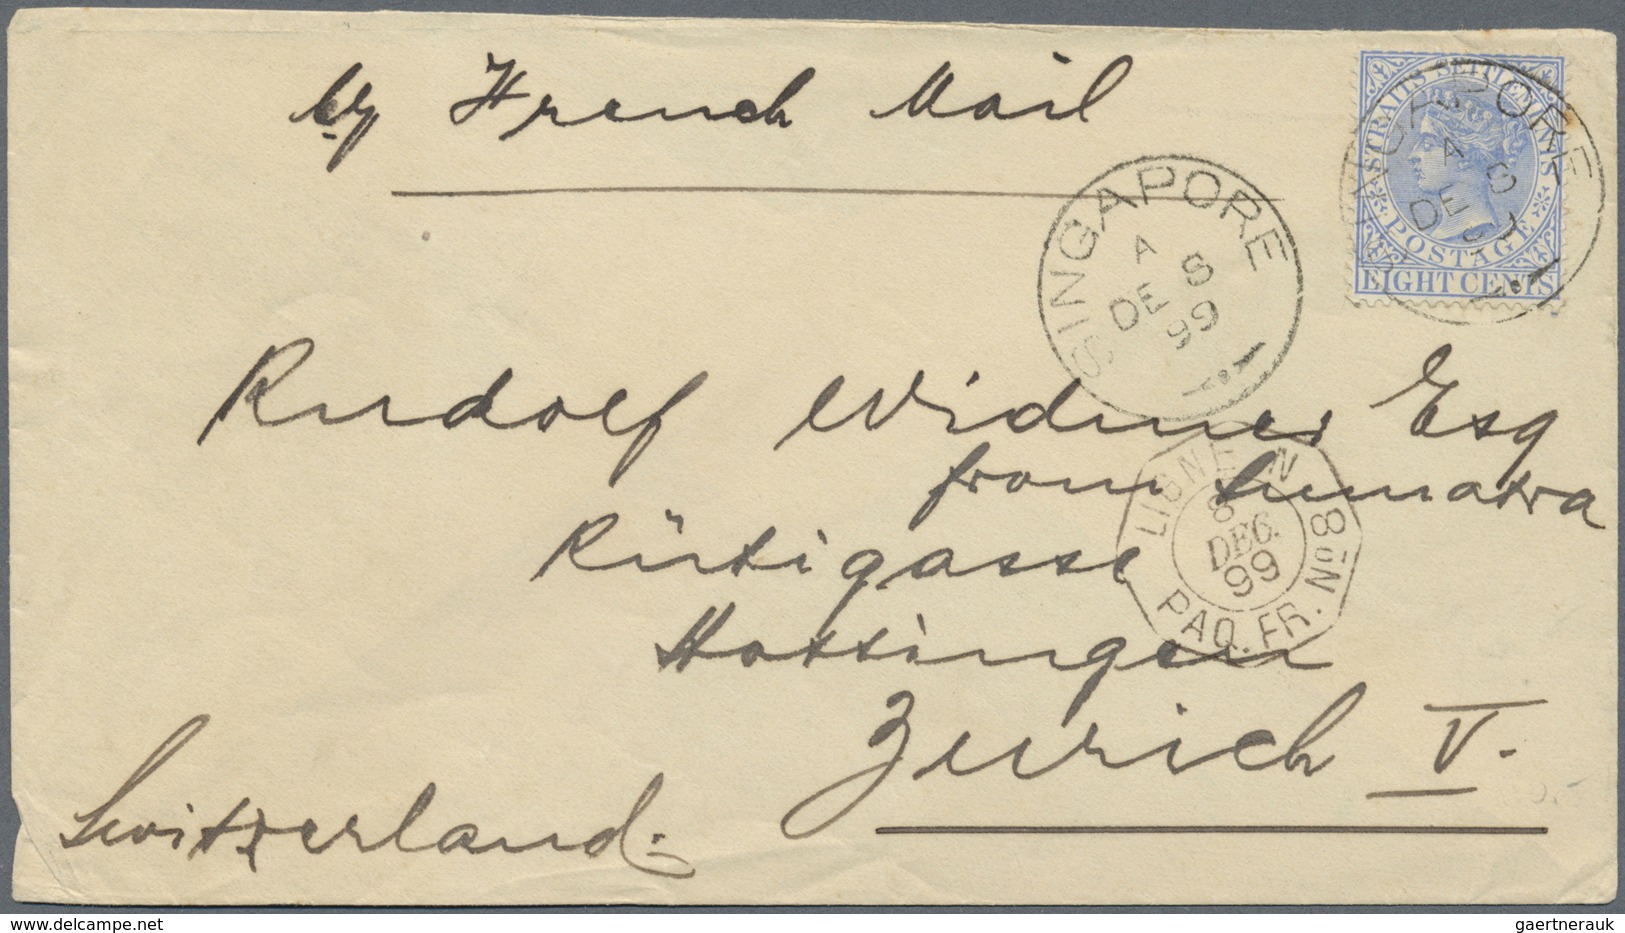 by French Mail
STRAITS SETTLEMENTS
POSTAGE
EIGHT CENTS
SINGAPORE
A
DE 8
99
SINGAPORE
A S
DE 8
99
Rudolf Widmer Esq
from Sumatra
Rütigasse
Hottingen
Zurich V.
Switzerland.
LIGNE N
8
DEC.
99
PAQ. FR. No 8
www.delcampe.net
gaertnerauk